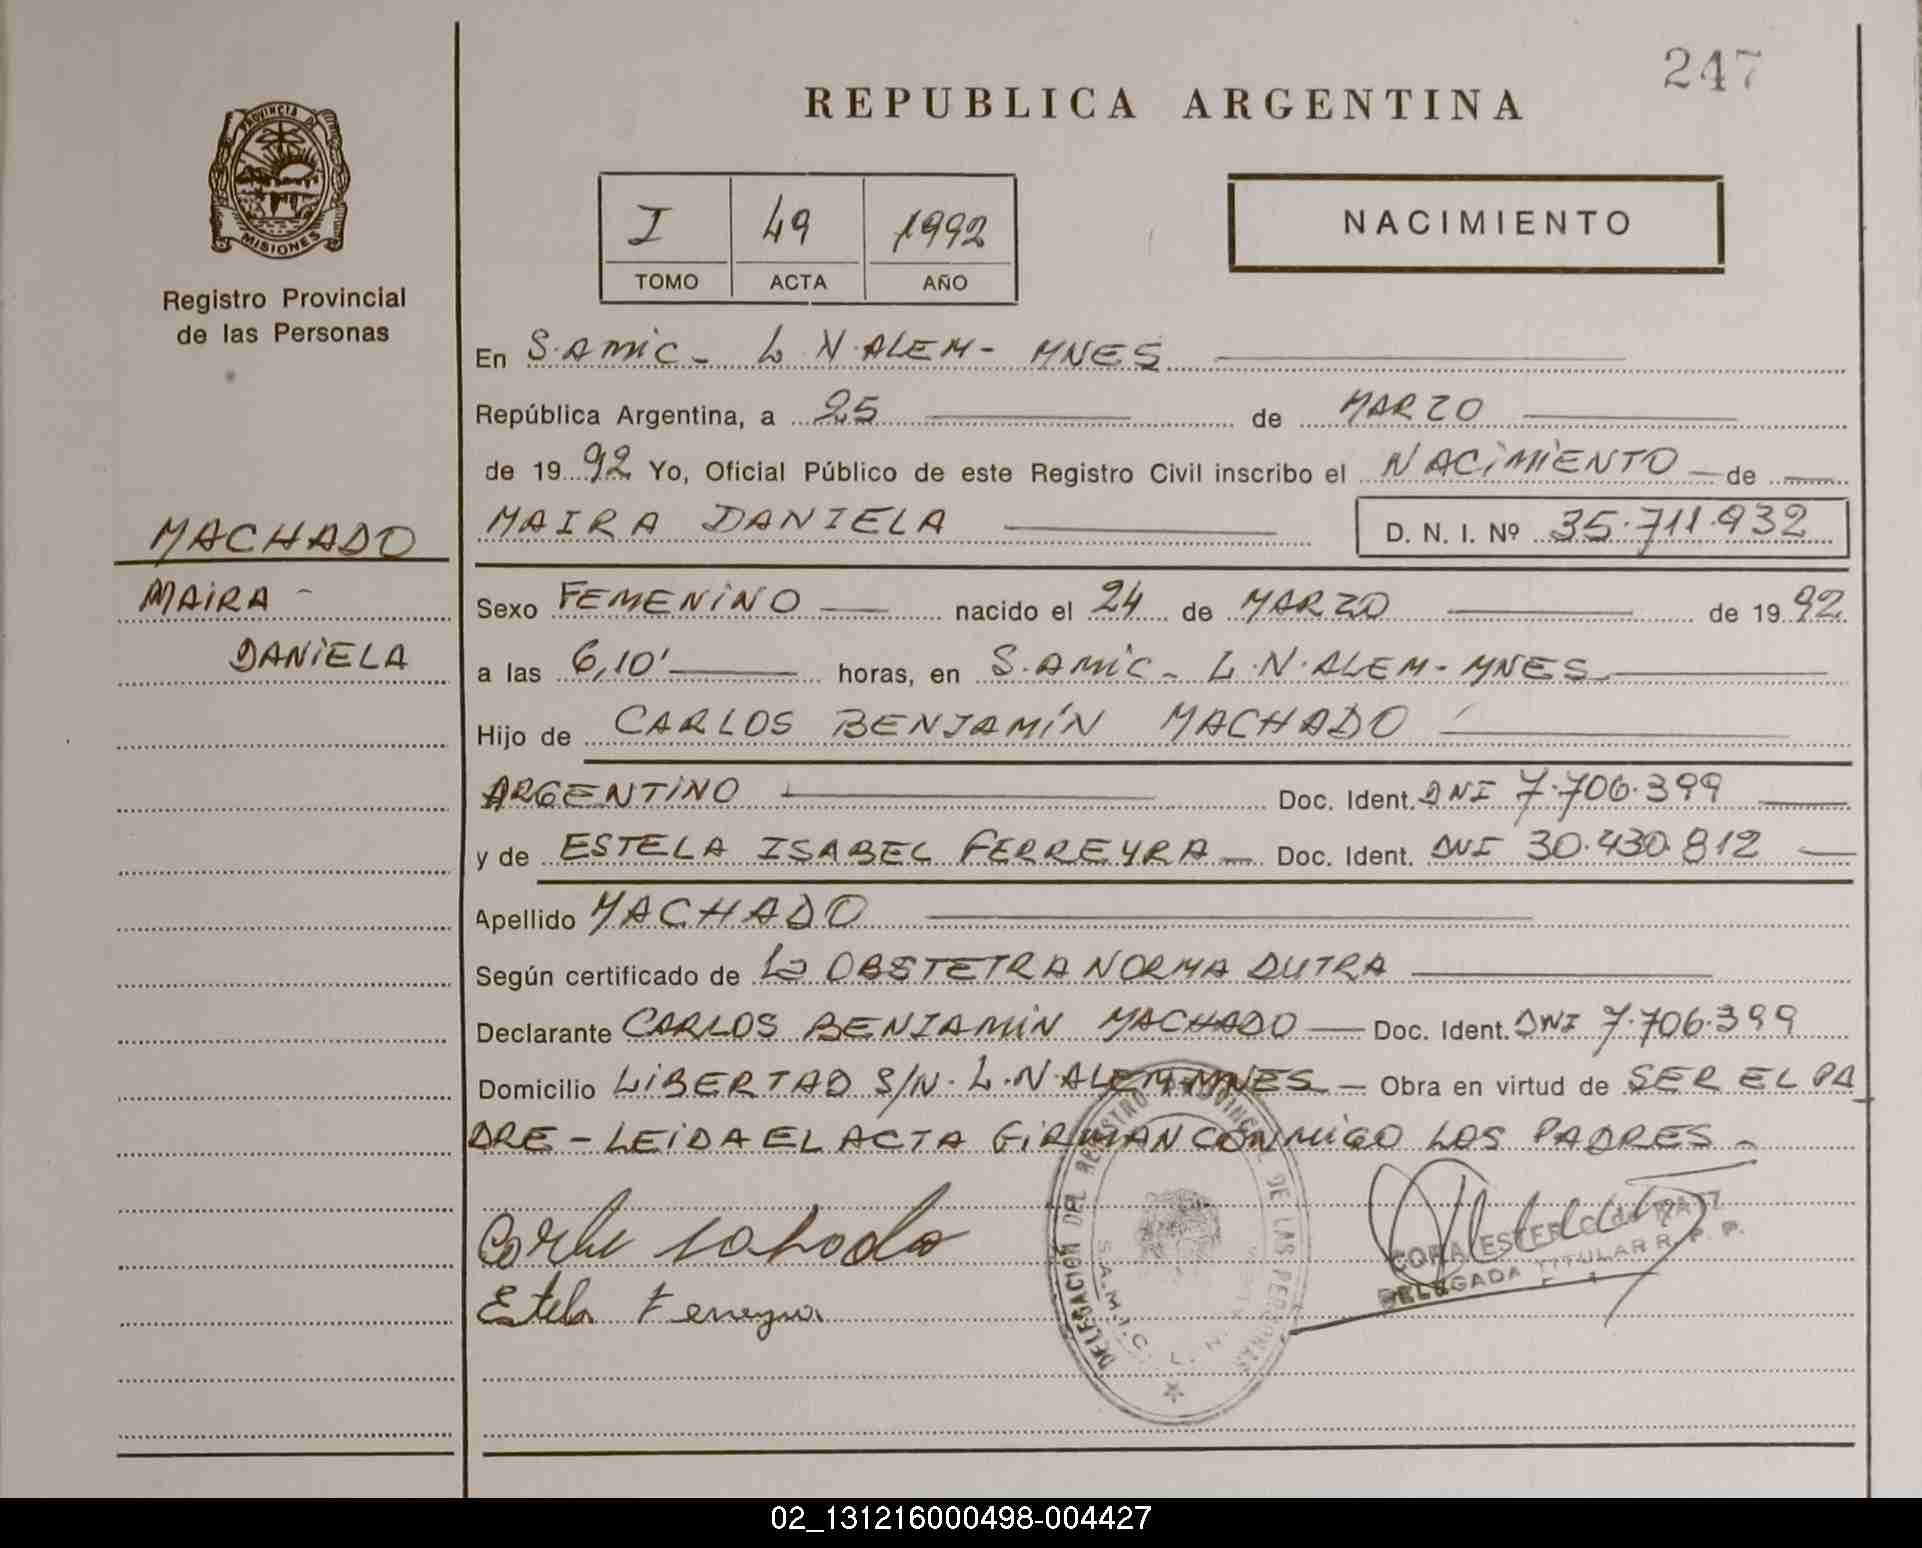 247
REPUBLICA ARGENTINA
PROVINCIA DE
MISIONES
Registro Provincial
de las Personas
I 49 1992
TOMO ACTA AÑO
NACIMIENTO
En S.AMIC- L.N.ALEM- MNES
República Argentina, a 25 de MARZO
de 1992 Yo, Oficial Público de este Registro Civil inscribo el NACIMIENTO de
MACHADO
MAIRA DANIELA D. N. I. Nº 35.711.932
MAIRA -
Sexo FEMENINO nacido el 24 de MARZO de 1992
DANIELA
a las 6,10' horas, en S.AMIC- L.N.ALEM- MNES
Hijo de CARLOS BENJAMÍN MACHADO
ARGENTINO Doc. Ident. DNI 7.706.399
y de ESTELA ISABEL FERREYRA Doc. Ident. DNI 30.430.812
Apellido MACHADO
Según certificado de La OBSTETRA NORMA DUTRA
Declarante CARLOS BENJAMIN MACHADO Doc. Ident. DNI 7.706.399
Domicilio LIBERTAD S/N. L.N.ALEM-MNES Obra en virtud de SER EL PA
DRE - LEIDA EL ACTA FIRMAN CONMIGO LOS PADRES -
Estela Ferreyra
DELEGACIÓN DEL REGISTRO PROVINCIAL DE LAS PERSONAS
S.A.M.I.C. L. N.
CORA ESTER
DELEGADA TITULAR R. P. P.
02_131216000498-004427